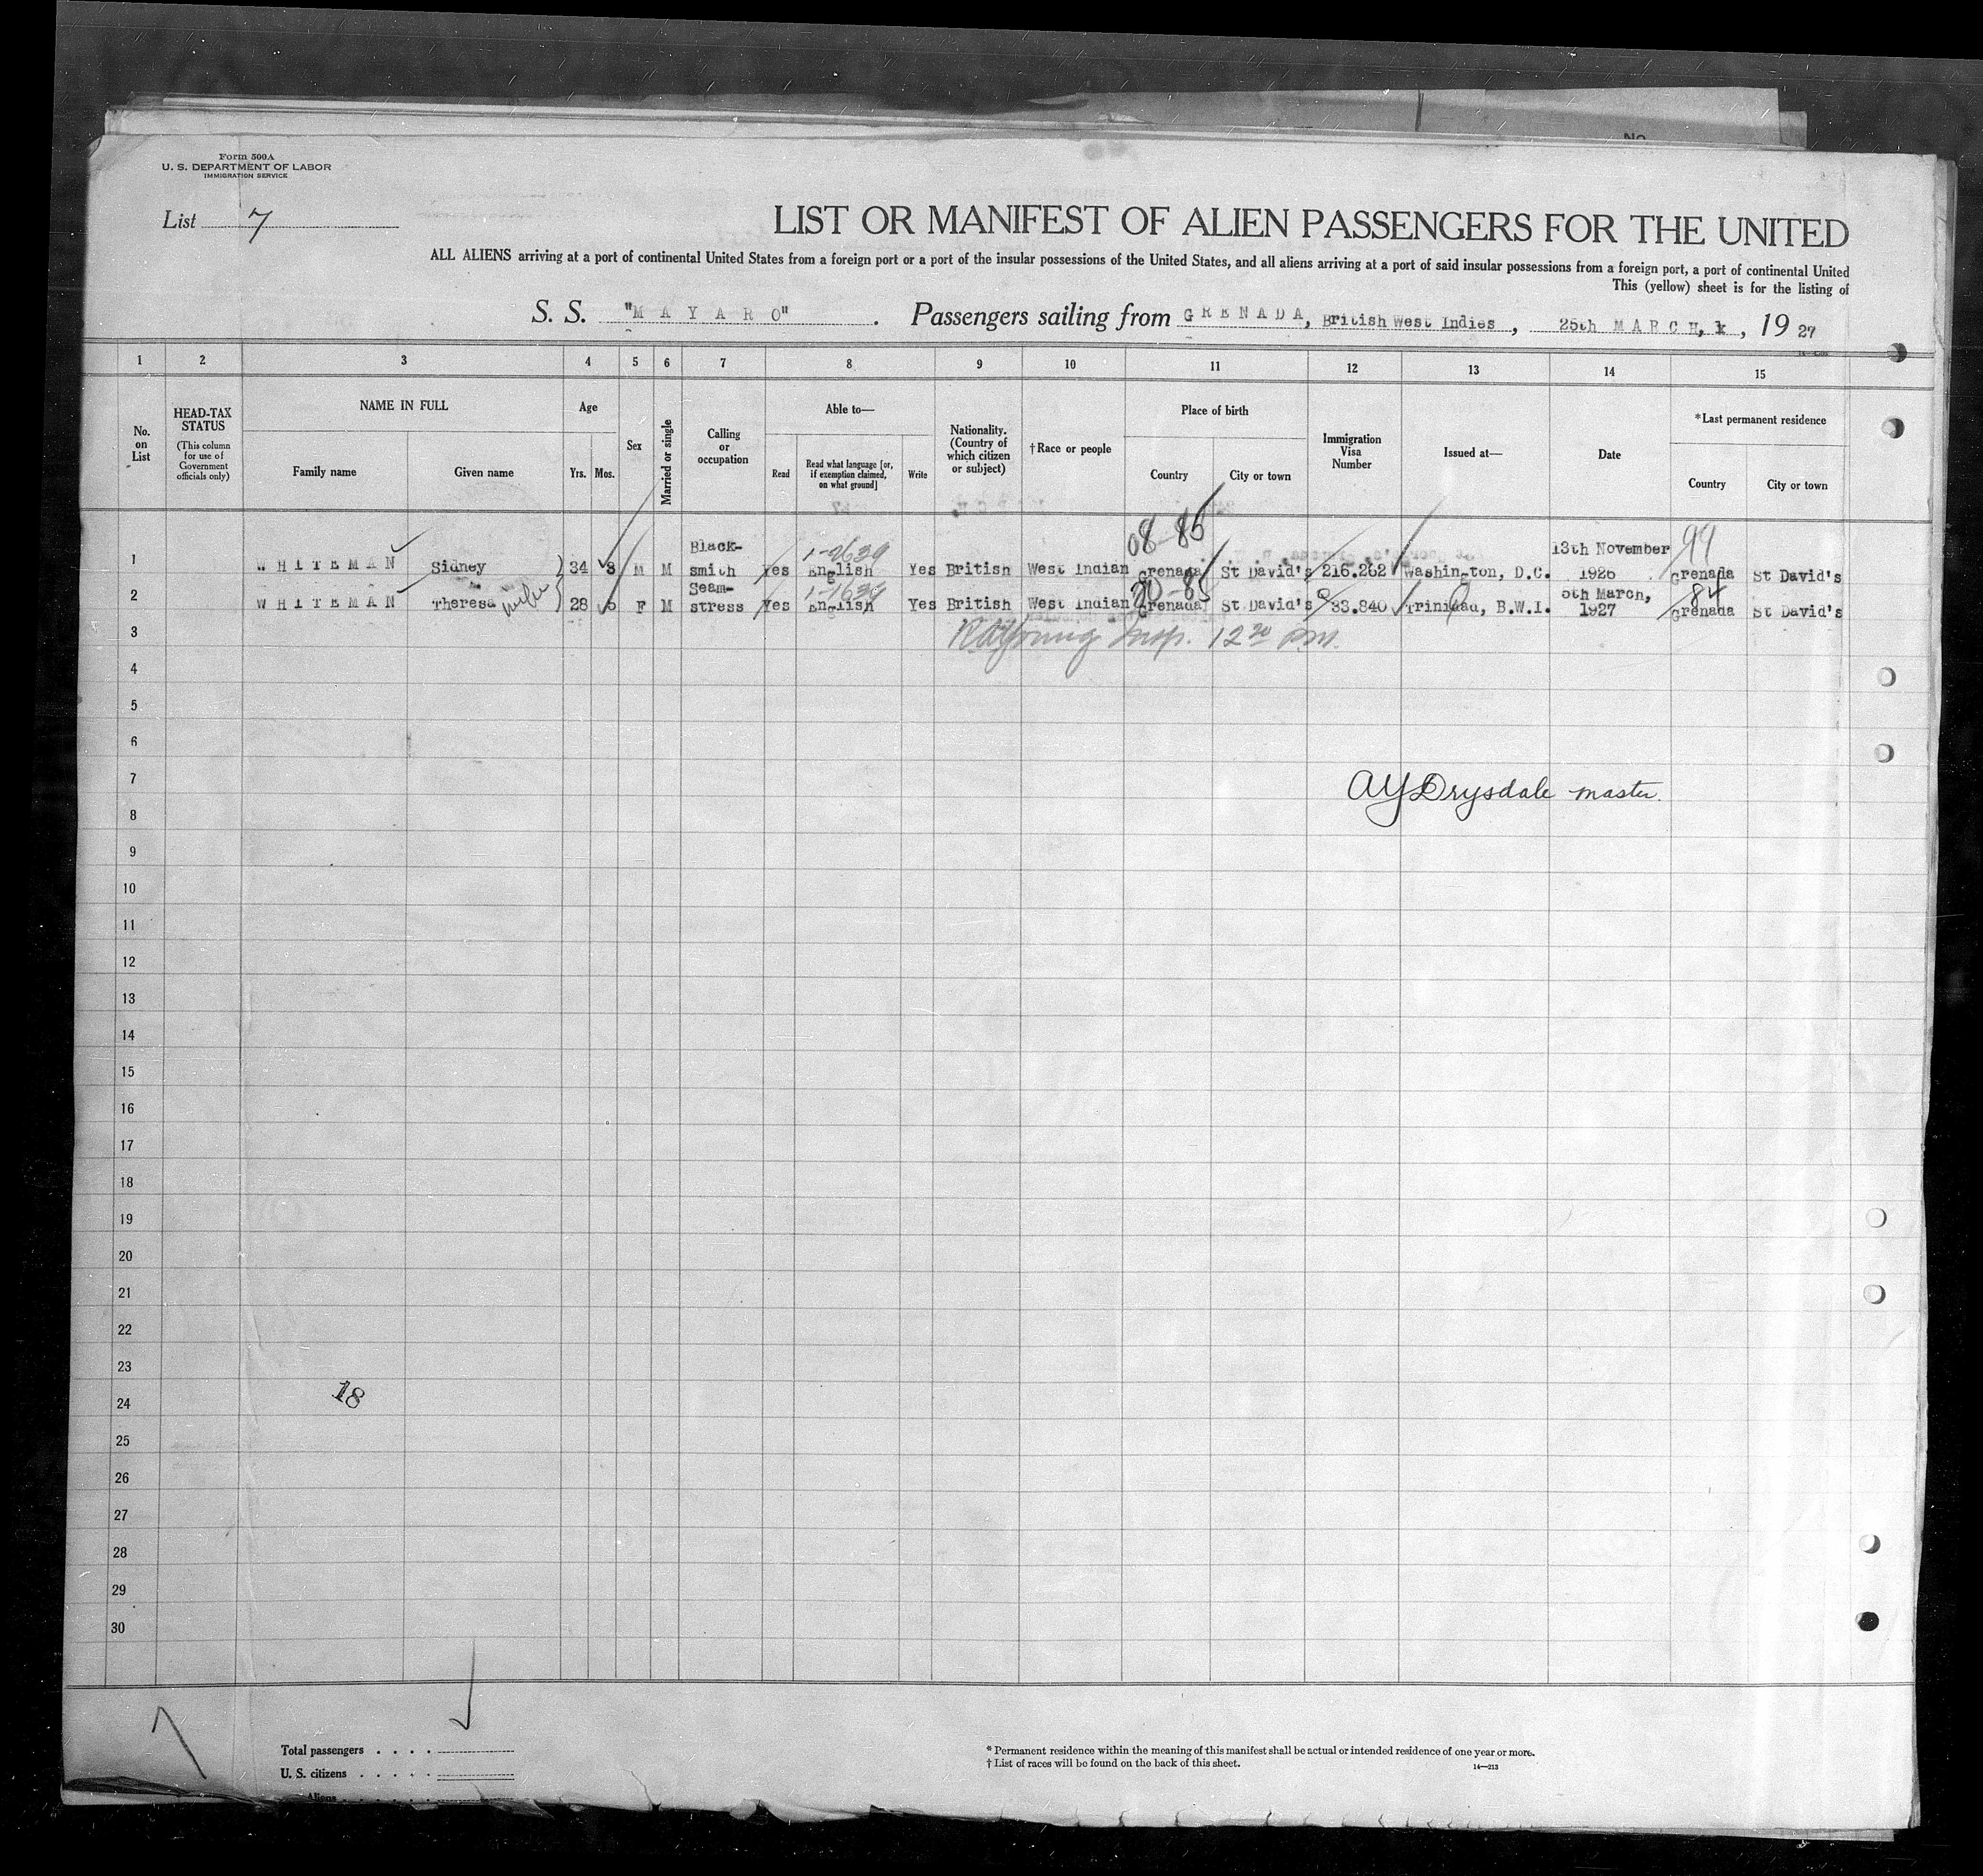 No
Form 500A
U. S. DEPARTMENT OF LABOR
IMMIGRATION SERVICE
List 7
LIST OR MANIFEST OF ALIEN PASSENGERS FOR THE UNITED
ALL ALIENS arriving at a port of continental United States from a foreign port or a port of the insular possessions of the United States, and all aliens arriving at a port of said insular possessions from a foreign port, a port of continental United
This (yellow) sheet is for the listing of
S. S. "MAYARO". Passengers sailing from GRENADA, British West Indies, 25th MARCH, 19 27
1 2 3 4 5 6 7 8 9 10 11 12 13 14 15
No. on List
HEAD-TAX STATUS
(This column for use of Government officials only)
NAME IN FULL
Family name Given name
Age
Yrs. Mos.
Sex
Married or single
Calling or occupation
Able to—
Read
Read what language [or, if exemption claimed, on what ground]
Write
Nationality. (Country of which citizen or subject)
†Race or people
Place of birth
Country City or town
Immigration Visa Number
Issued at—
Date
*Last permanent residence
Country City or town
08-85 99
1 WHITEMAN Sidney 34 8 M M Black-smith Yes English Yes British West Indian Grenada St David's 216.262 Washington, D.C. 13th November 1926 Grenada St David's
20-85 84
2 WHITEMAN Theresa wife 28 M Seam-stress Yes English Yes British West Indian Grenada St David's 33.840 Trinidad, B.W.I. March, 1927 Grenada St David's
3 Insp. 12 30 P.M.
4
5
6
7 AY Drysdale master.
8
9
10
11
12
13
14
15
16
17
18
19
20
21
22
23
18
24
25
26
27
28
29
30
Total passengers . . . .
U. S. citizens . . . . .
Aliens . . . . . .
* Permanent residence within the meaning of this manifest shall be actual or intended residence of one year or more.
† List of races will be found on the back of this sheet.
14—213